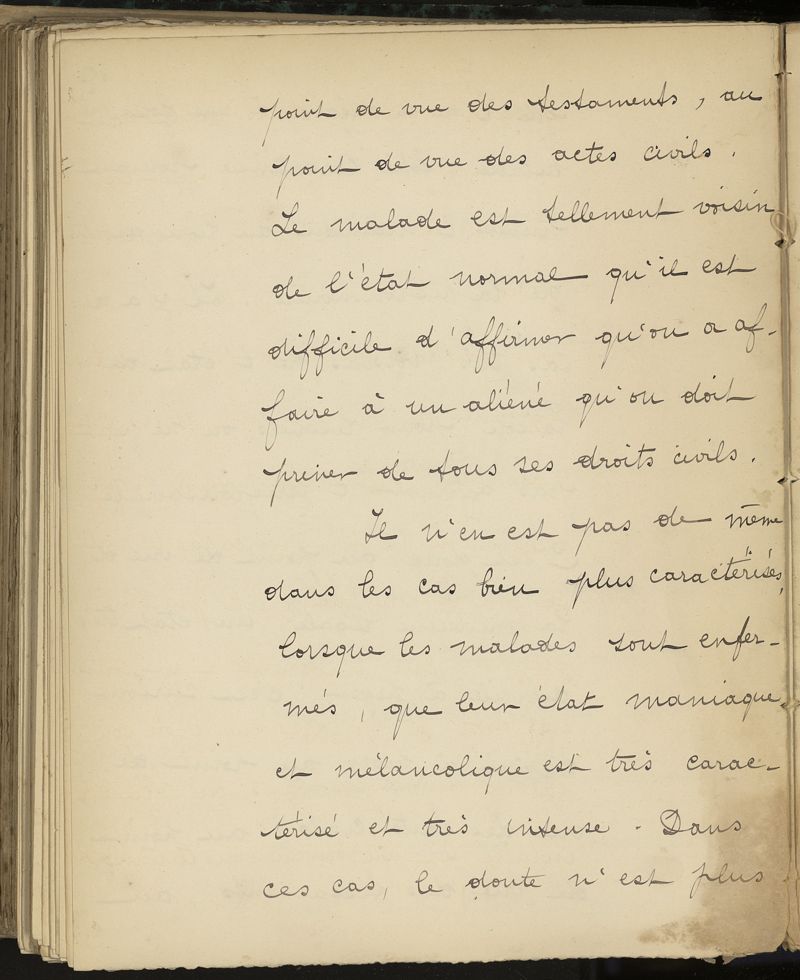 point de vue des testaments, au
point de vue des actes civils.
Le malade est tellement voisin
de l'état normal qu'il est
difficile d'affirmer qu'on a af-
faire à un aliéné qu'on doit
priver de tous ses droits civils.
Il n'en est pas de même
dans les cas bien plus caractérisés,
lorsque les malades sont enfer-
més, que leur état maniaque
et mélancolique est très carac-
térisé et très intense. Dans
ces cas, le doute n'est plus